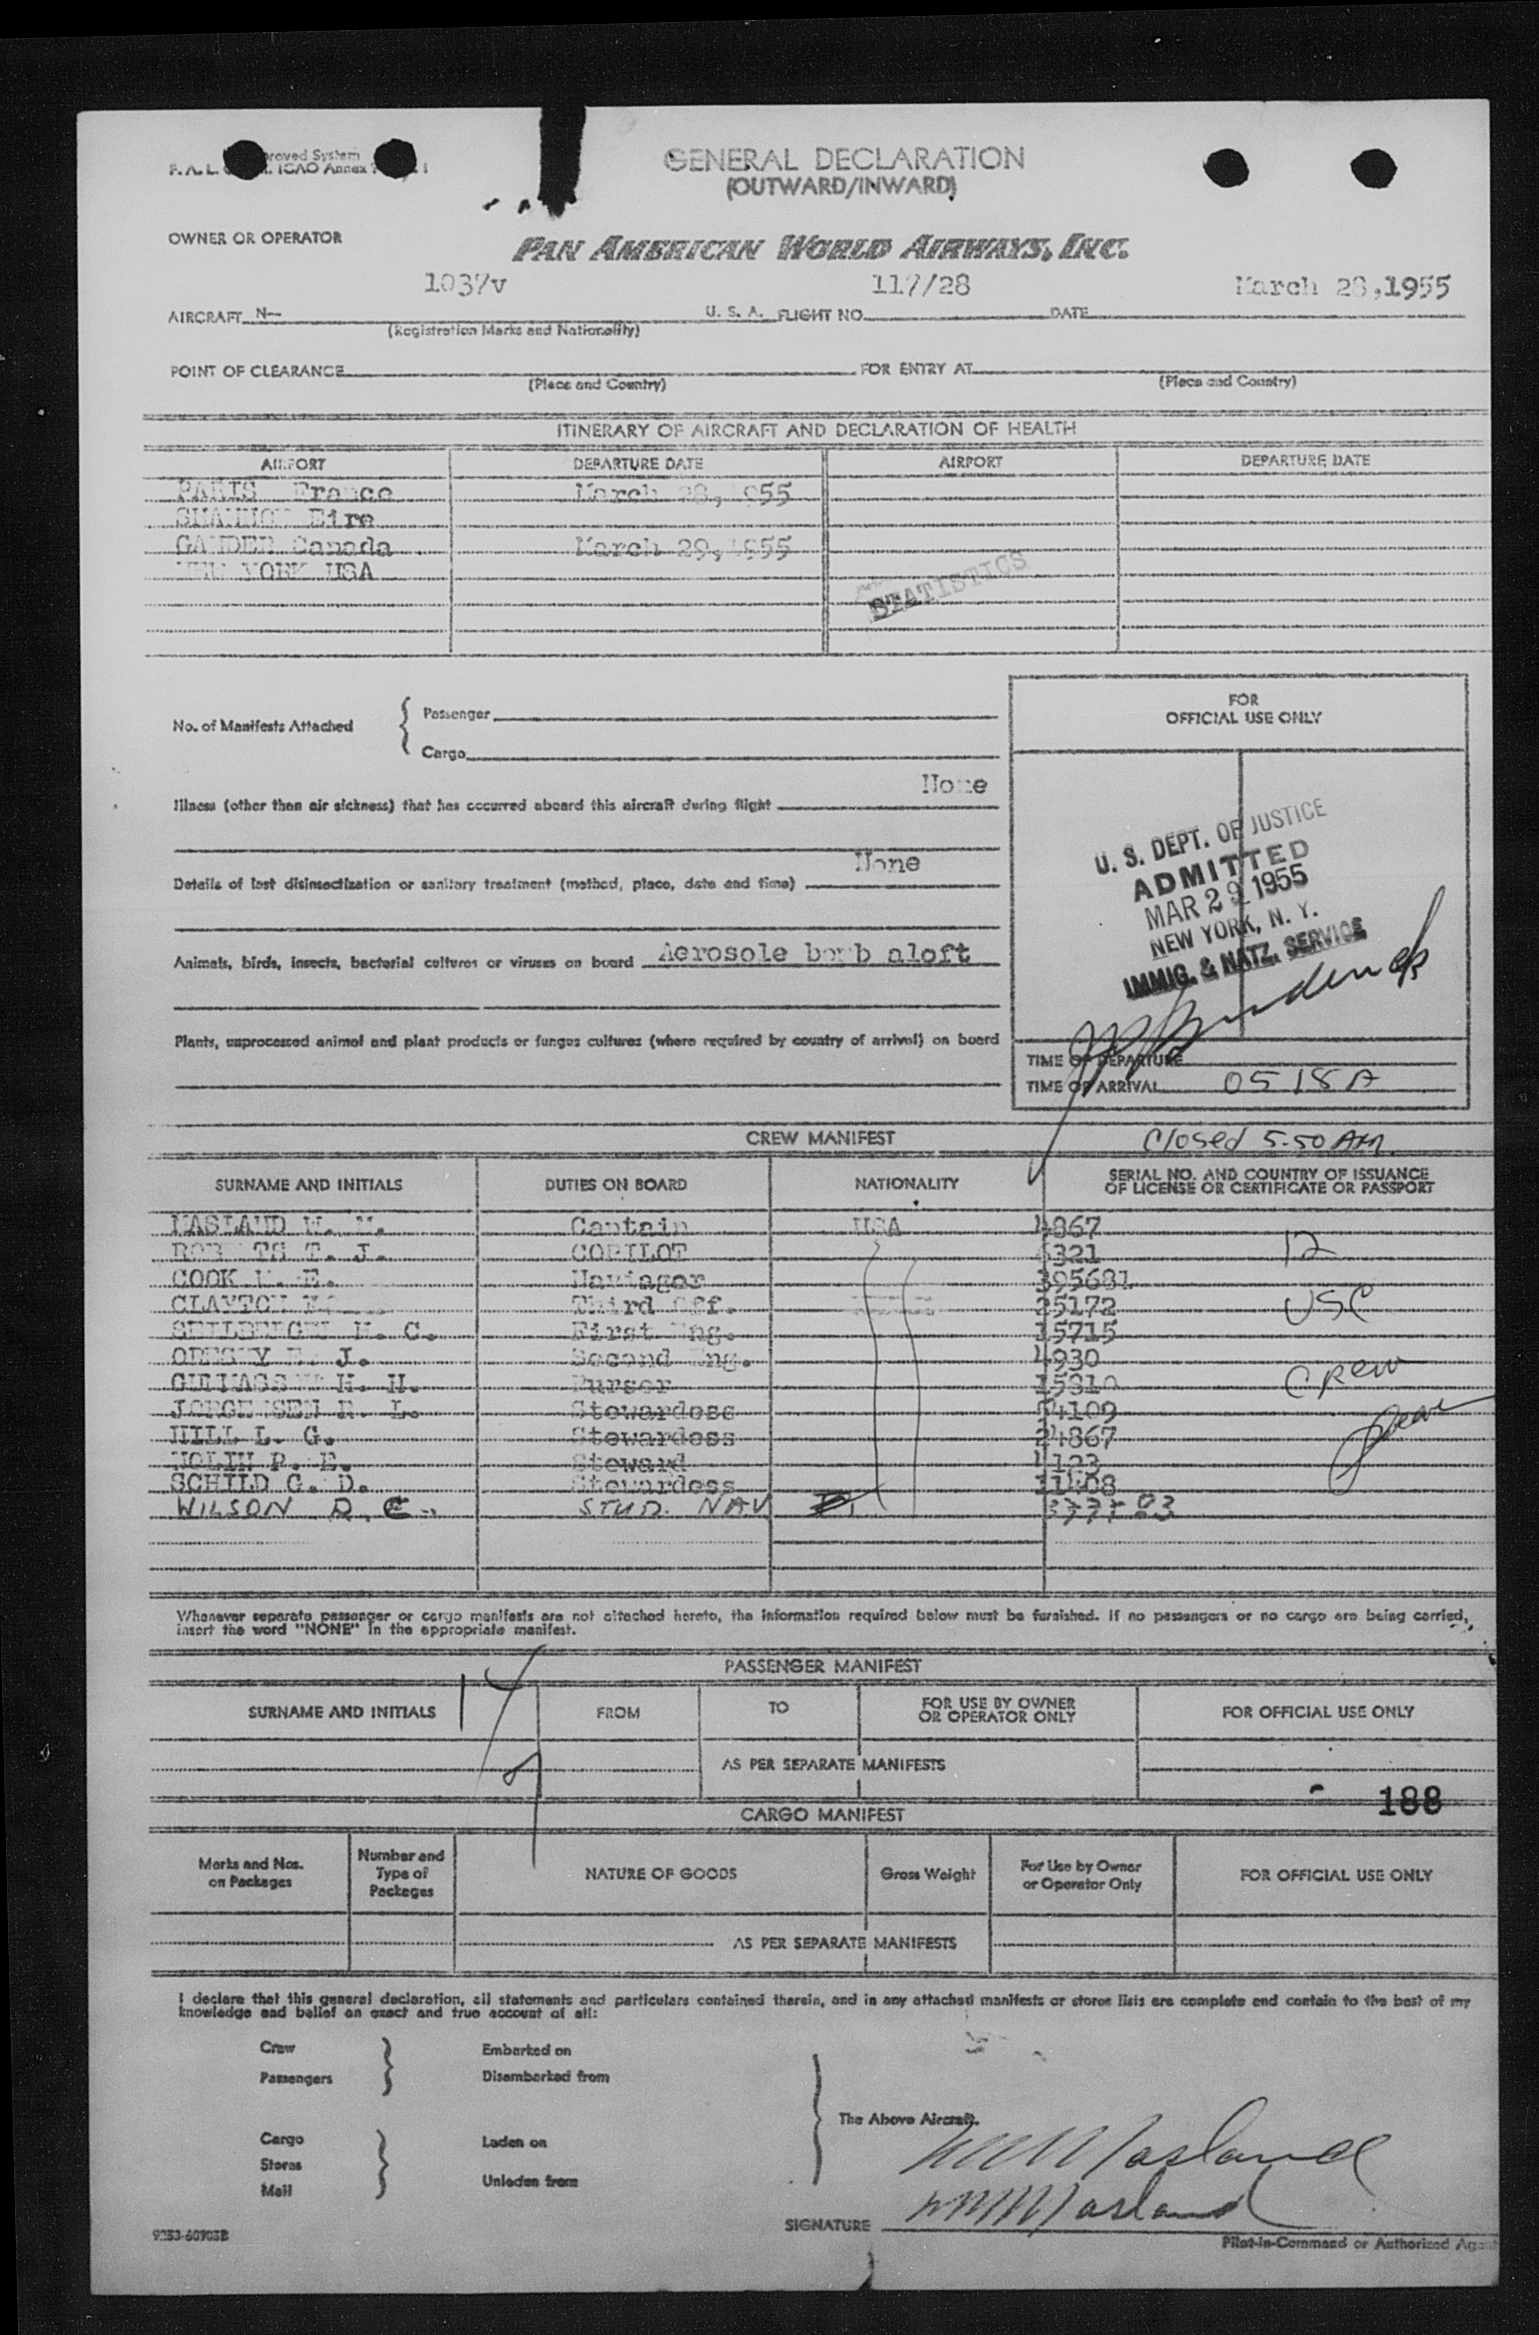 GENERAL DECLARATION
(OUTWARD/INWARD)
OWNER OR OPERATOR
PAN AMERICAN WORLD AIRWAYS, INC.
1037v 117/28 March 28,1955
AIRCRAFT N— U. S. A. FLIGHT NO. DATE
(Registration Marks and Nationality)
POINT OF CLEARANCE FOR ENTRY AT
(Place and Country) (Place and Country)
ITINERARY OF AIRCRAFT AND DECLARATION OF HEALTH
AIRPORT DEPARTURE DATE AIRPORT DEPARTURE DATE
PARIS France March 28, 1955
SHANNON Eire
GANDER Canada March 29, 1955
NEW YORK USA
STATISTICS
FOR
OFFICIAL USE ONLY
No. of Manifests Attached
Passenger
Cargo
None
Illness (other than air sickness) that has occurred aboard this aircraft during flight
None
Details of last disinsectization or sanitary treatment (method, place, date and time)
Animals, birds, insects, bacterial cultures or viruses on board Aerosole bomb aloft
Plants, unprocessed animal and plant products or fungus cultures (where required by country of arrival) on board
U. S. DEPT. OF JUSTICE
ADMITTED
MAR 29 1955
NEW YORK, N. Y.
IMMIG. & NATZ. SERVICE
TIME OF DEPARTURE
TIME OF ARRIVAL 0518 A
CREW MANIFEST Closed 5-50 AM
SURNAME AND INITIALS DUTIES ON BOARD NATIONALITY SERIAL NO. AND COUNTRY OF ISSUANCE
OF LICENSE OR CERTIFICATE OR PASSPORT
MASLAND W. M. Captain USA 4867
ROBERTS T. J. COPILOT 4321 12
COOK E. Naviagor 395681
CLAYTON Third Off. 25172 USC
H. C. First Eng. 15715
J. Second Eng. 4930
H. H. Purser 15810 Crew
JORGENSEN R. L. Stewardess 54109
HILL L. G. Stewardess 24867
NOLIN P. E. Steward 4123
SCHILD G. D. Stewardess 11408
WILSON D. C. STUD. NAV
Whenever separate passenger or cargo manifests are not attached hereto, the information required below must be furnished. If no passengers or no cargo are being carried,
insert the word "NONE" in the appropriate manifest.
PASSENGER MANIFEST
SURNAME AND INITIALS FROM TO FOR USE BY OWNER
OR OPERATOR ONLY FOR OFFICIAL USE ONLY
AS PER SEPARATE MANIFESTS
188
CARGO MANIFEST
Marks and Nos.
on Packages Number and
Type of
Packages NATURE OF GOODS Gross Weight For Use by Owner
or Operator Only FOR OFFICIAL USE ONLY
AS PER SEPARATE MANIFESTS
I declare that this general declaration, all statements and particulars contained therein, and in any attached manifests or stores lists are complete and contain to the best of my
knowledge and belief an exact and true account of all:
Crew Embarked on
Passengers Disembarked from
The Above Aircraft.
Cargo Laden on
Stores
Mail Unladen from
WM Masland
SIGNATURE WM Masland
Pilot-in-Command or Authorized Agent
9253-60903B